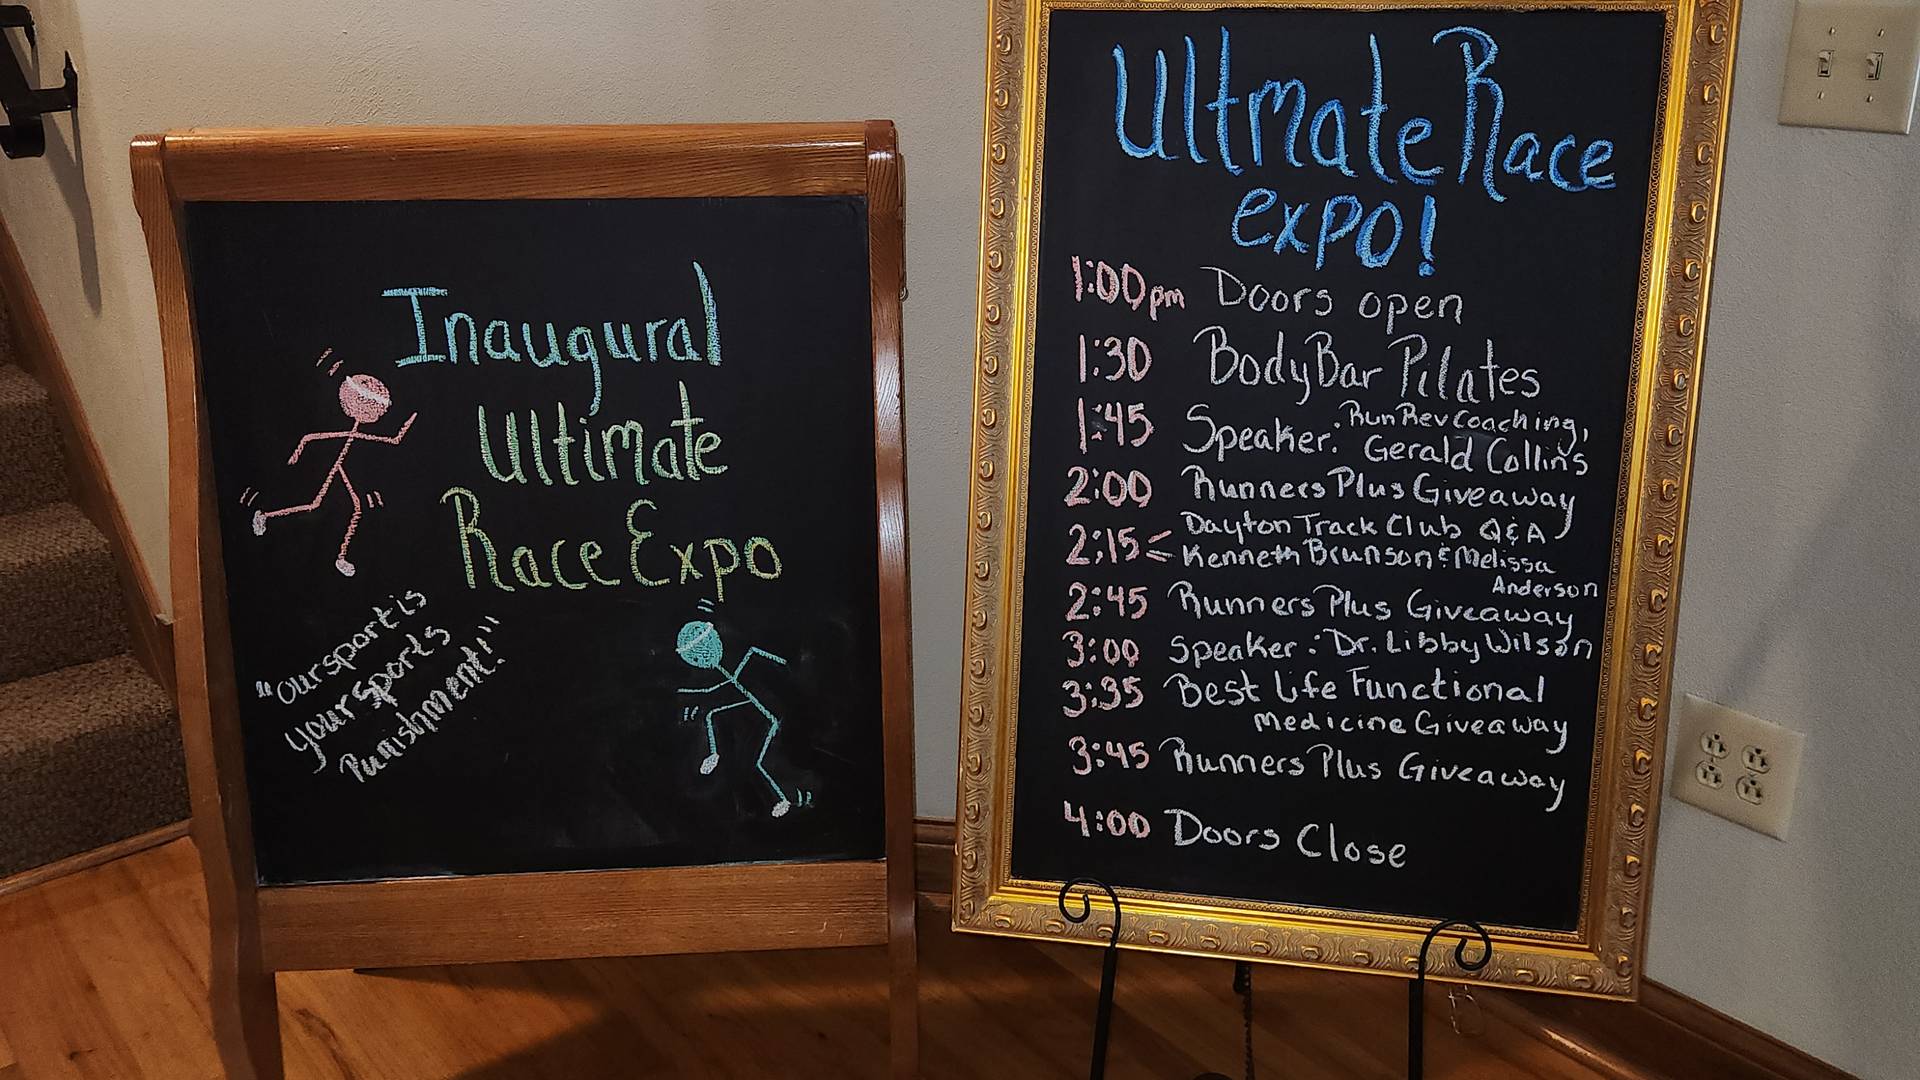 Inaugural
Ultimate
Race Expo
"our sport is
your sports
Punishment!"
Ultmate Race
expo!
1:00pm Doors open
1:30 BodyBar Pilates
1:45 Speaker: RunRev Coaching,
Gerald Collins
2:00 Runners Plus Giveaway
2:15 Dayton Track Club Q&A
Kenneth Brunson & Melissa
Anderson
2:45 Runners Plus Giveaway
3:00 Speaker: Dr. Libby Wilson
3:35 Best Life Functional
Medicine Giveaway
3:45 Runners Plus Giveaway
4:00 Doors Close